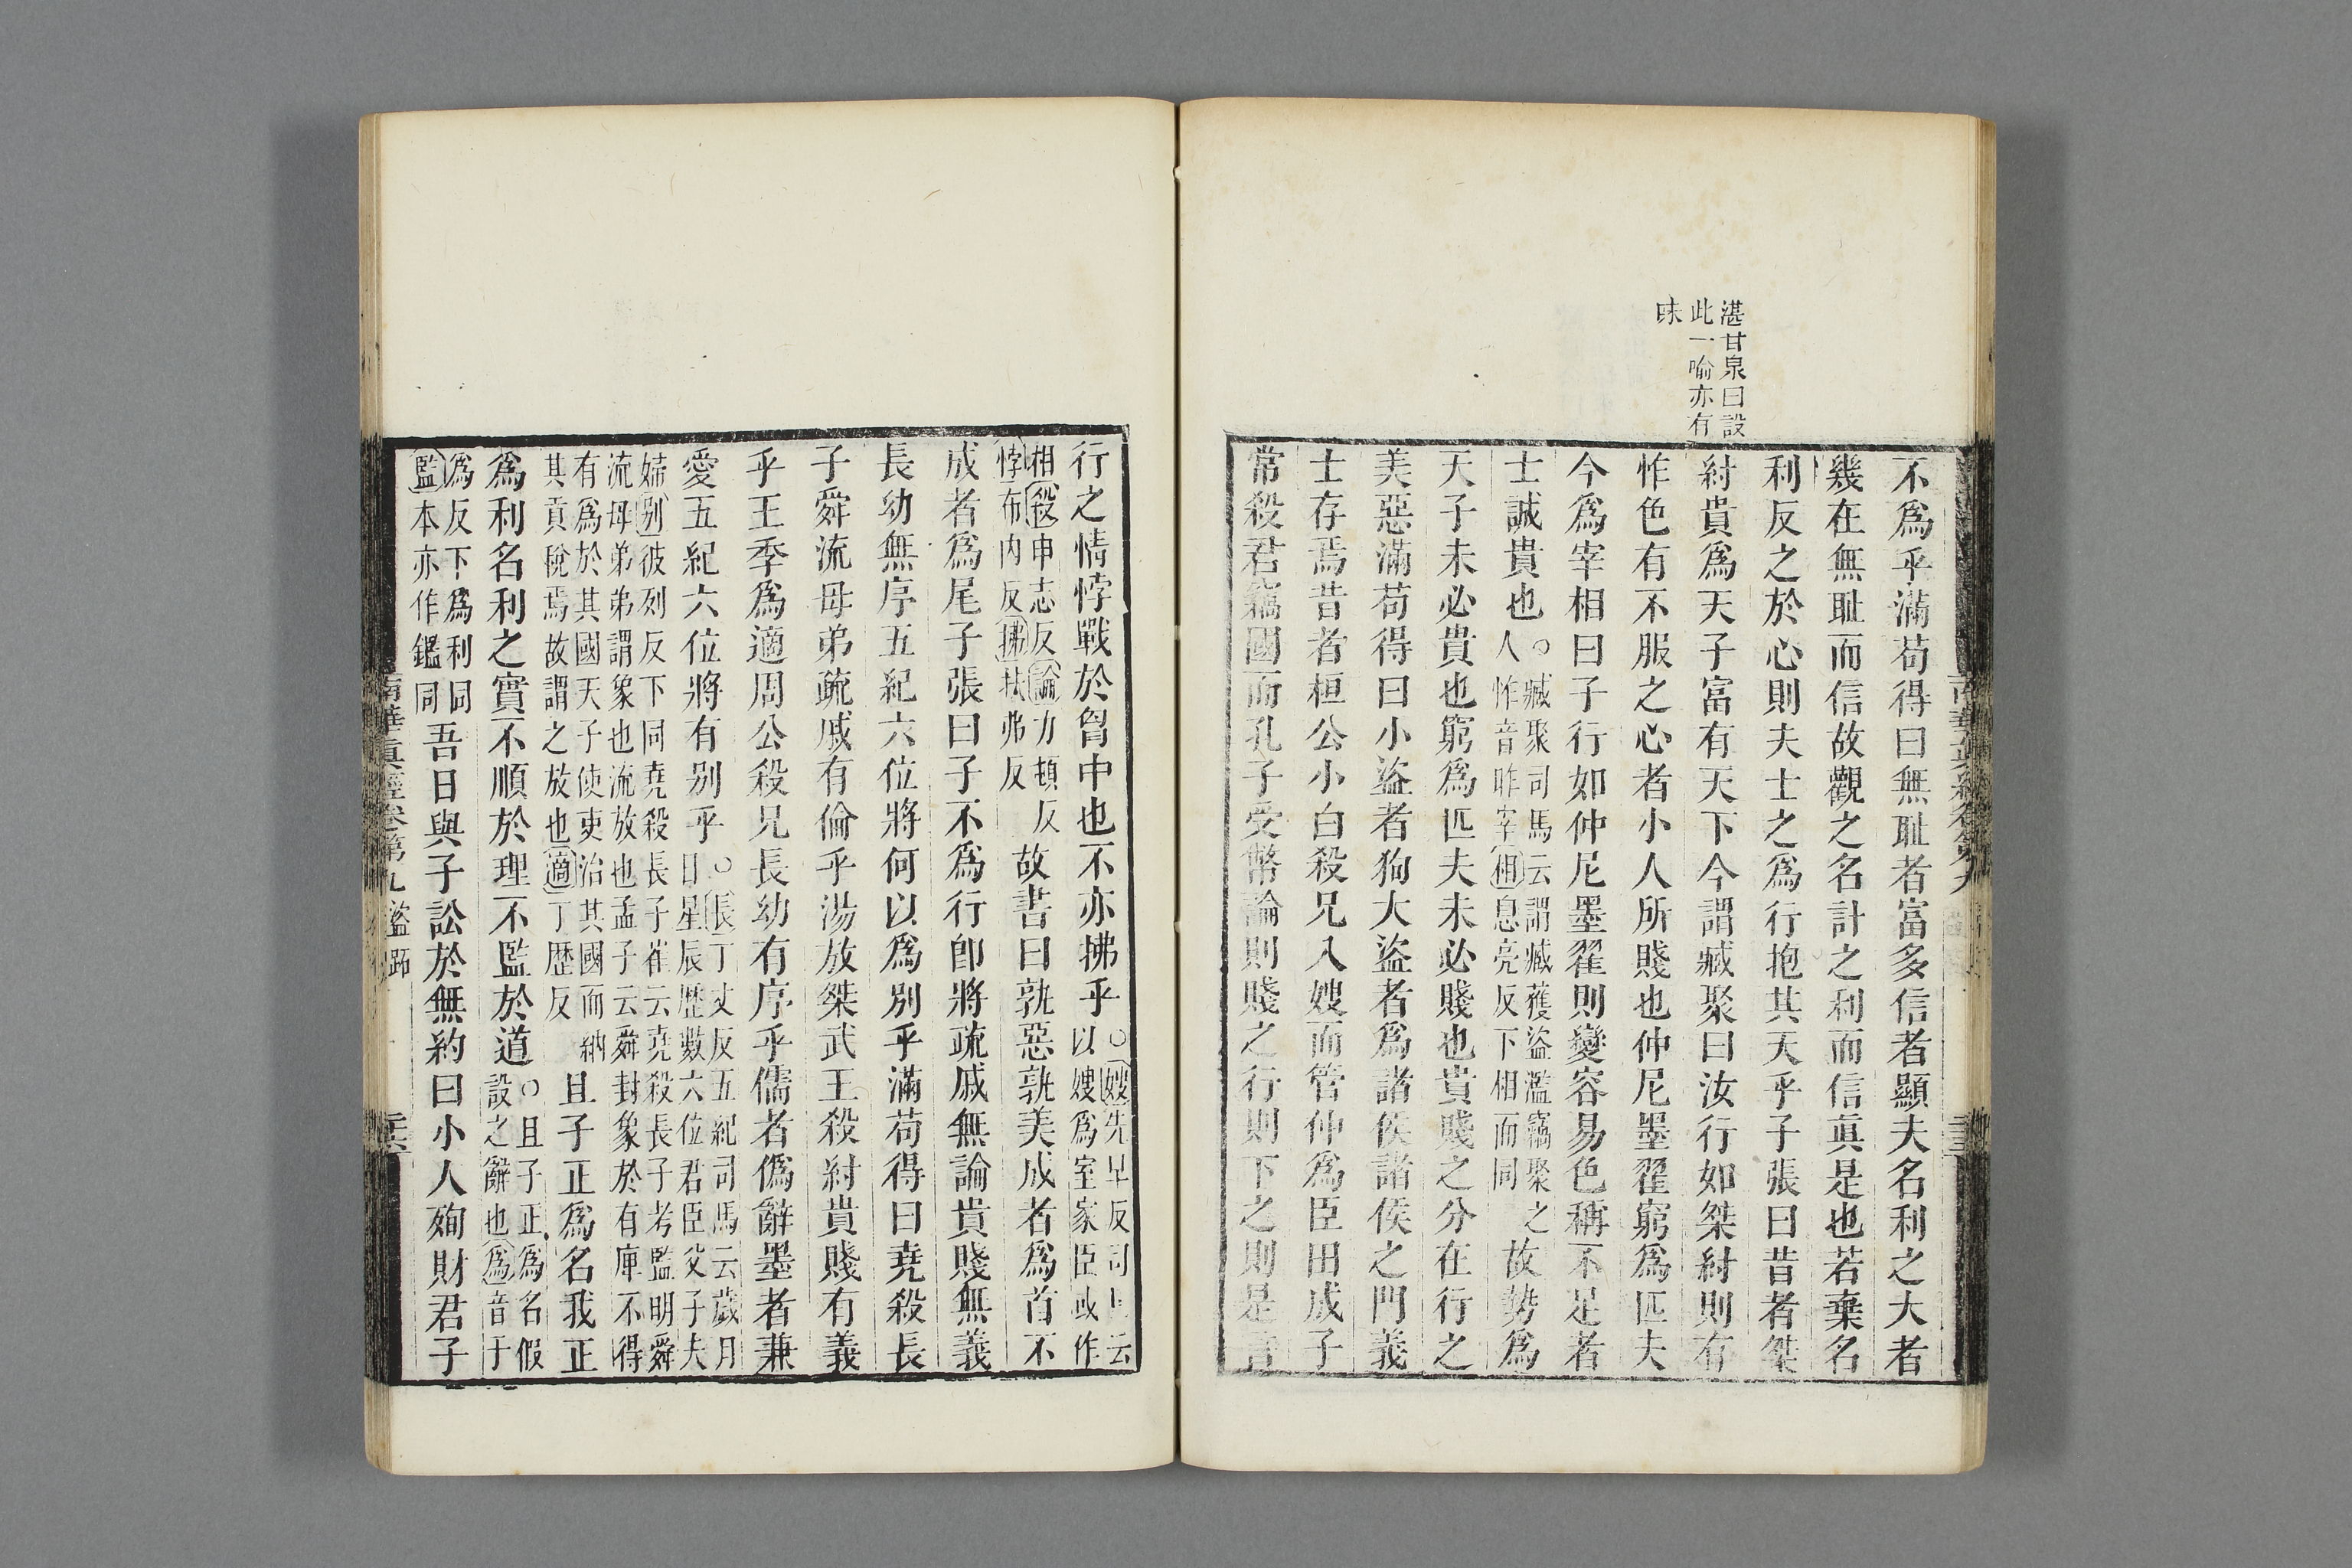 湛甘泉曰設
此一喻亦有
味
不爲乎滿苟得曰無耻者富多信者顯夫名利之大者
幾在無耻而信故觀之名計之利而信眞是也若棄名
利反之於心則夫士之爲行抱其天乎子張曰昔者桀
紂貴爲天子富有天下今謂臧聚曰汝行如桀紂則有
怍色有不服之心者小人所賤也仲尼墨翟窮爲匹夫
今爲宰相曰子行如仲尼墨翟則變容易色稱不足者
士誠貴也○臧聚司馬云謂臧獲盜濫竊聚之
人怍音昨宰相息亮反下相而同故勢爲
天子未必貴也窮爲匹夫未必賤也貴賤之分在行之
美惡滿苟得曰小盜者狗大盜者爲諸侯諸侯之門義
士存焉昔者桓公小白殺兄入嫂而管仲爲臣田成子
常殺君竊國而孔子受幣論則賤之行則下之則是言
行之情悖戰於胷中也不亦拂乎○嫂先早反司云
以嫂爲室家臣或作
相殺申志反論力頓反
悖布內反拂扶弗反故書曰孰惡孰美成者爲首不
成者爲尾子張曰子不爲行卽將疏戚無論貴賤無義
長幼無序五紀六位將何以爲別乎滿苟得曰堯殺長
子舜流母弟疏戚有倫乎湯放桀武王殺紂貴賤有義
乎王季爲適周公殺兄長幼有序乎儒者僞辭墨者兼
愛五紀六位將有别乎○長丁丈反五紀司馬云歲月
日星辰歷數六位君臣父子夫
婦别彼列反下同堯殺長子崔云堯殺長子考監明舜
流母弟弟謂象也流放也孟子云舜封象於有庳不得
有爲於其國天子使吏治其國而納
其貢稅焉故謂之放也適丁歴反且子正爲名我正
爲利名利之實不順於理不監於道○且子正爲名假
設之辭也爲音于
爲反下爲利同
監本亦作鑑同吾日與子訟於無約曰小人殉財君子
南華眞經卷第九 盜蹠